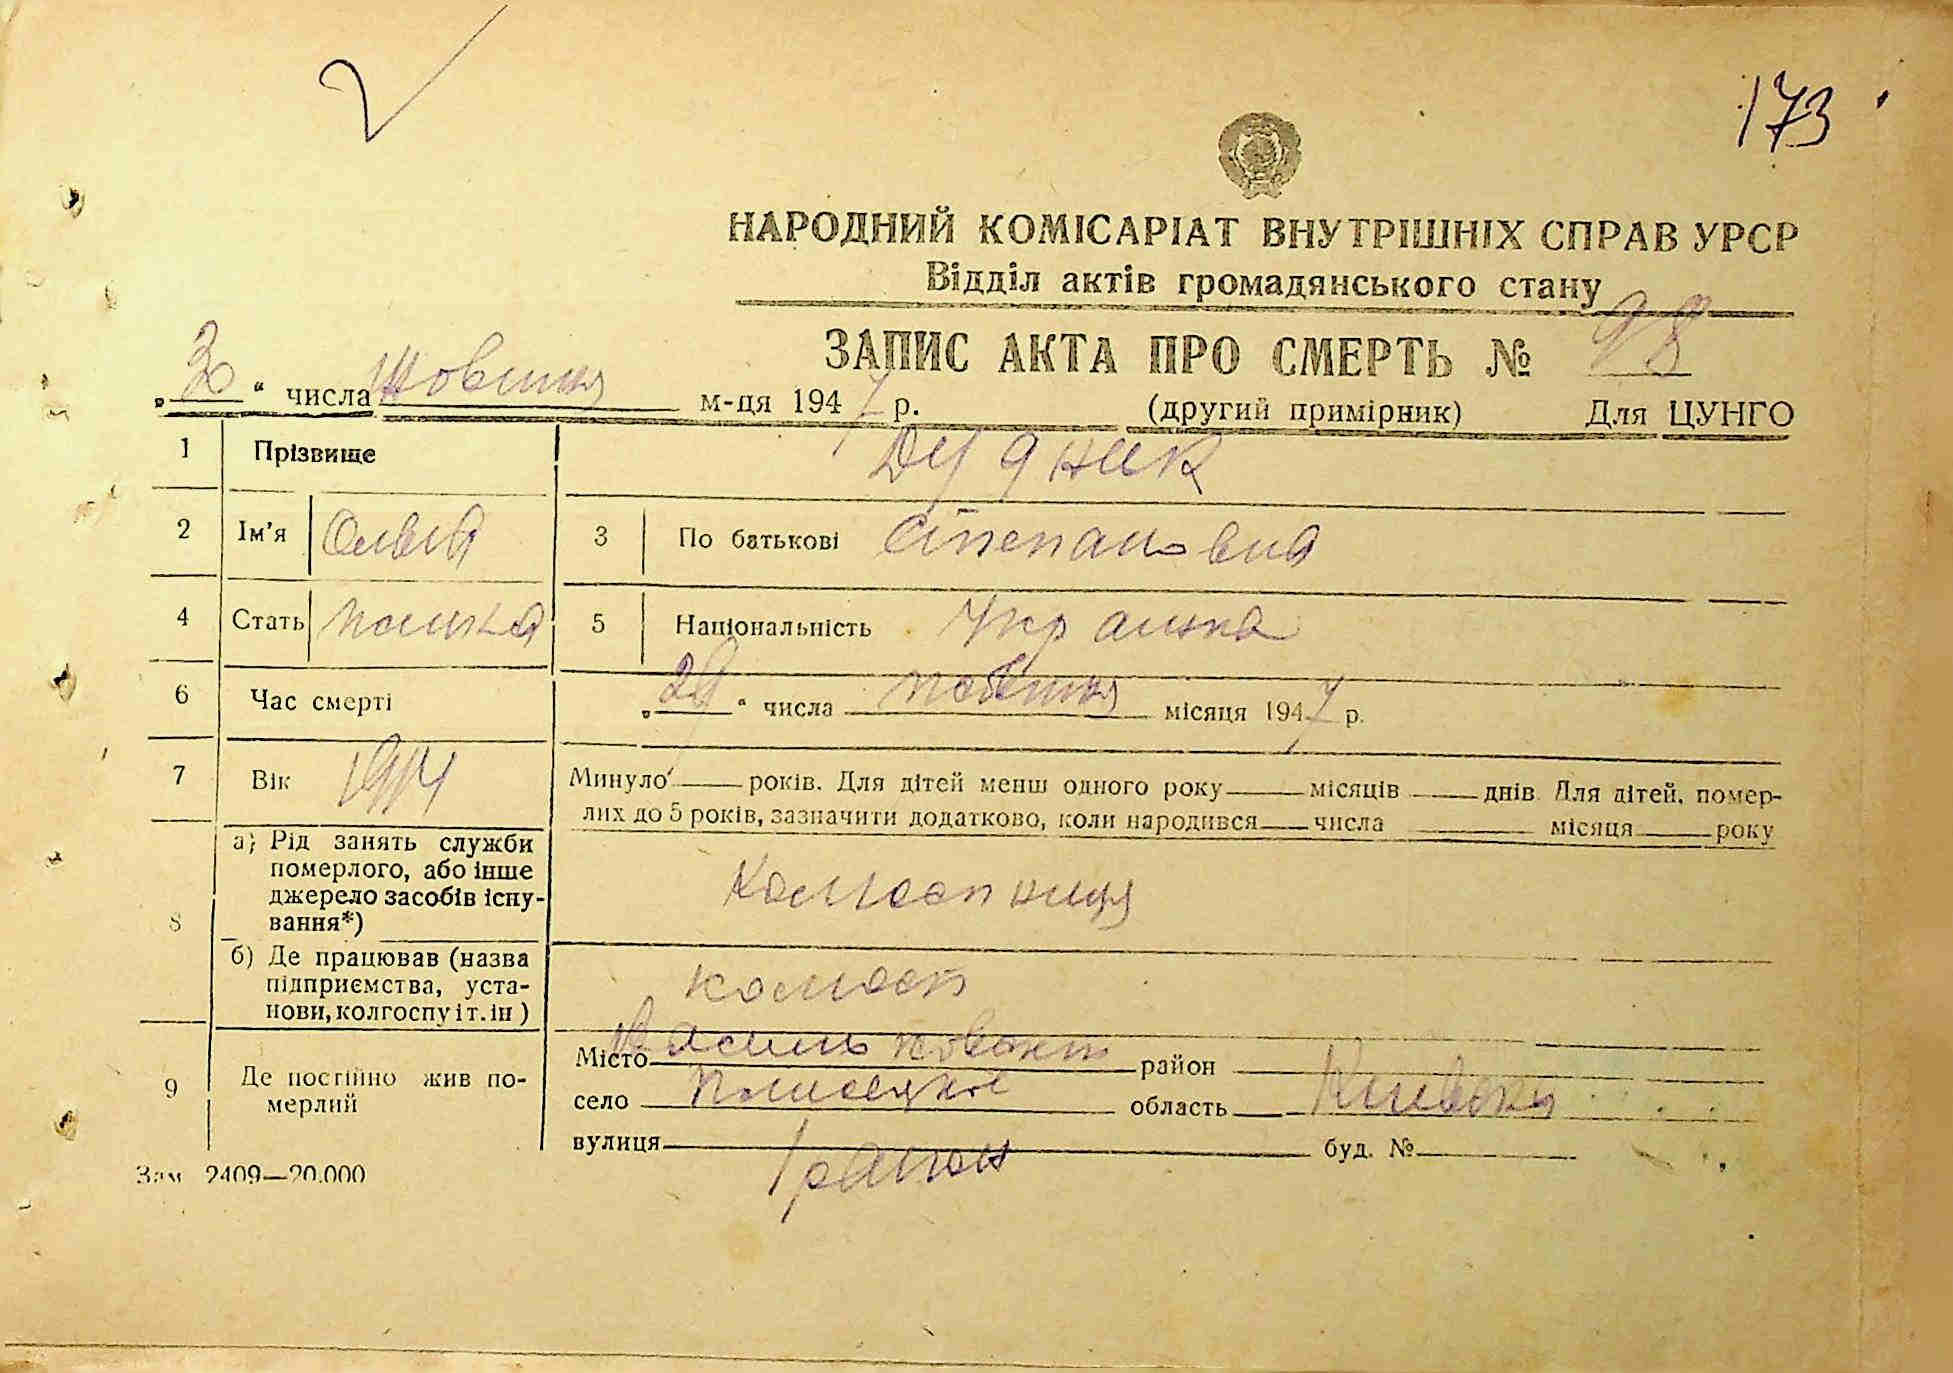 173
НАРОДНИЙ КОМІСАРІАТ ВНУТРІШНІХ СПРАВ УРСР
Відділ актів громадянського стану
ЗАПИС АКТА ПРО СМЕРТЬ № 98
„30“ числа Жовтня м-ця 1947 р. (другий примірник) Для ЦУНГО
1 Прізвище Дудник
2 Ім'я Ольга 3 По батькові Степановна
4 Стать 5 Національність Українка
6 Час смерті „29“ числа жовтня місяця 1947 р.
7 Вік 1914 Минуло — років. Для дітей менш одного року — місяців — днів. Для дітей, помер-
лих до 5 років, зазначити додатково, коли народився — числа місяця року
8 а) Рід занять служби
померлого, або інше
джерело засобів існу-
вання*)
Колгоспниця
б) Де працював (назва
підприємства, уста-
нови, колгоспу і т. ін)
колгосп
9 Де постійно жив по-
мерлий
Місто район
село область Київська
вулиця буд. №
Зам 2409—20.000